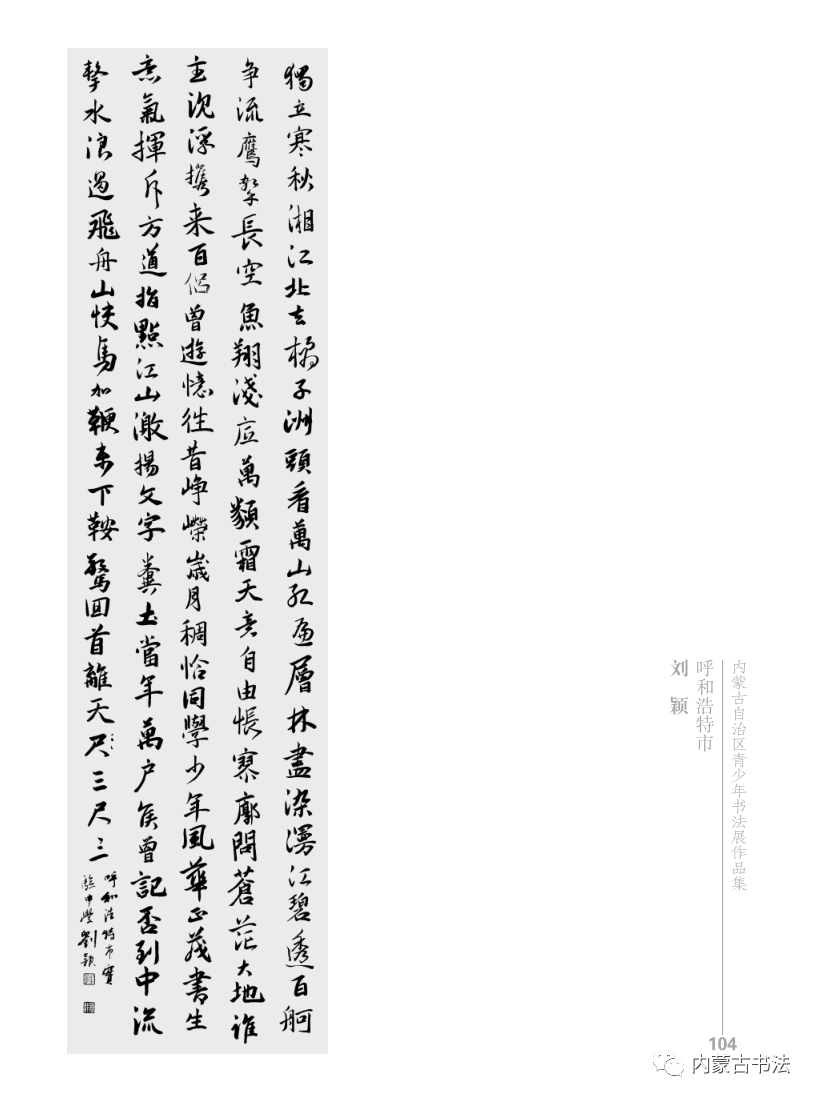 獨立寒秋湘江北去橘子洲頭看萬山红遍層林盡染漫江碧透百舸
争流鷹擊長空魚翔淺底萬類霜天竞自由悵寥廓問蒼茫大地谁
主沉浮攜来百侣曾遊憶往昔峥嶸歲月稠恰同學少年風華正茂書生
意氣揮斥方遒指點江山激揚文字糞土當年萬户侯曾記否到中流
擊水浪遏飛舟山快馬加鞭未下鞍驚回首離天尺三尺三
呼和浩特市實
驗中學劉穎
内蒙古自治区青少年书法展作品集
呼和浩特市
刘颖
104
内蒙古书法